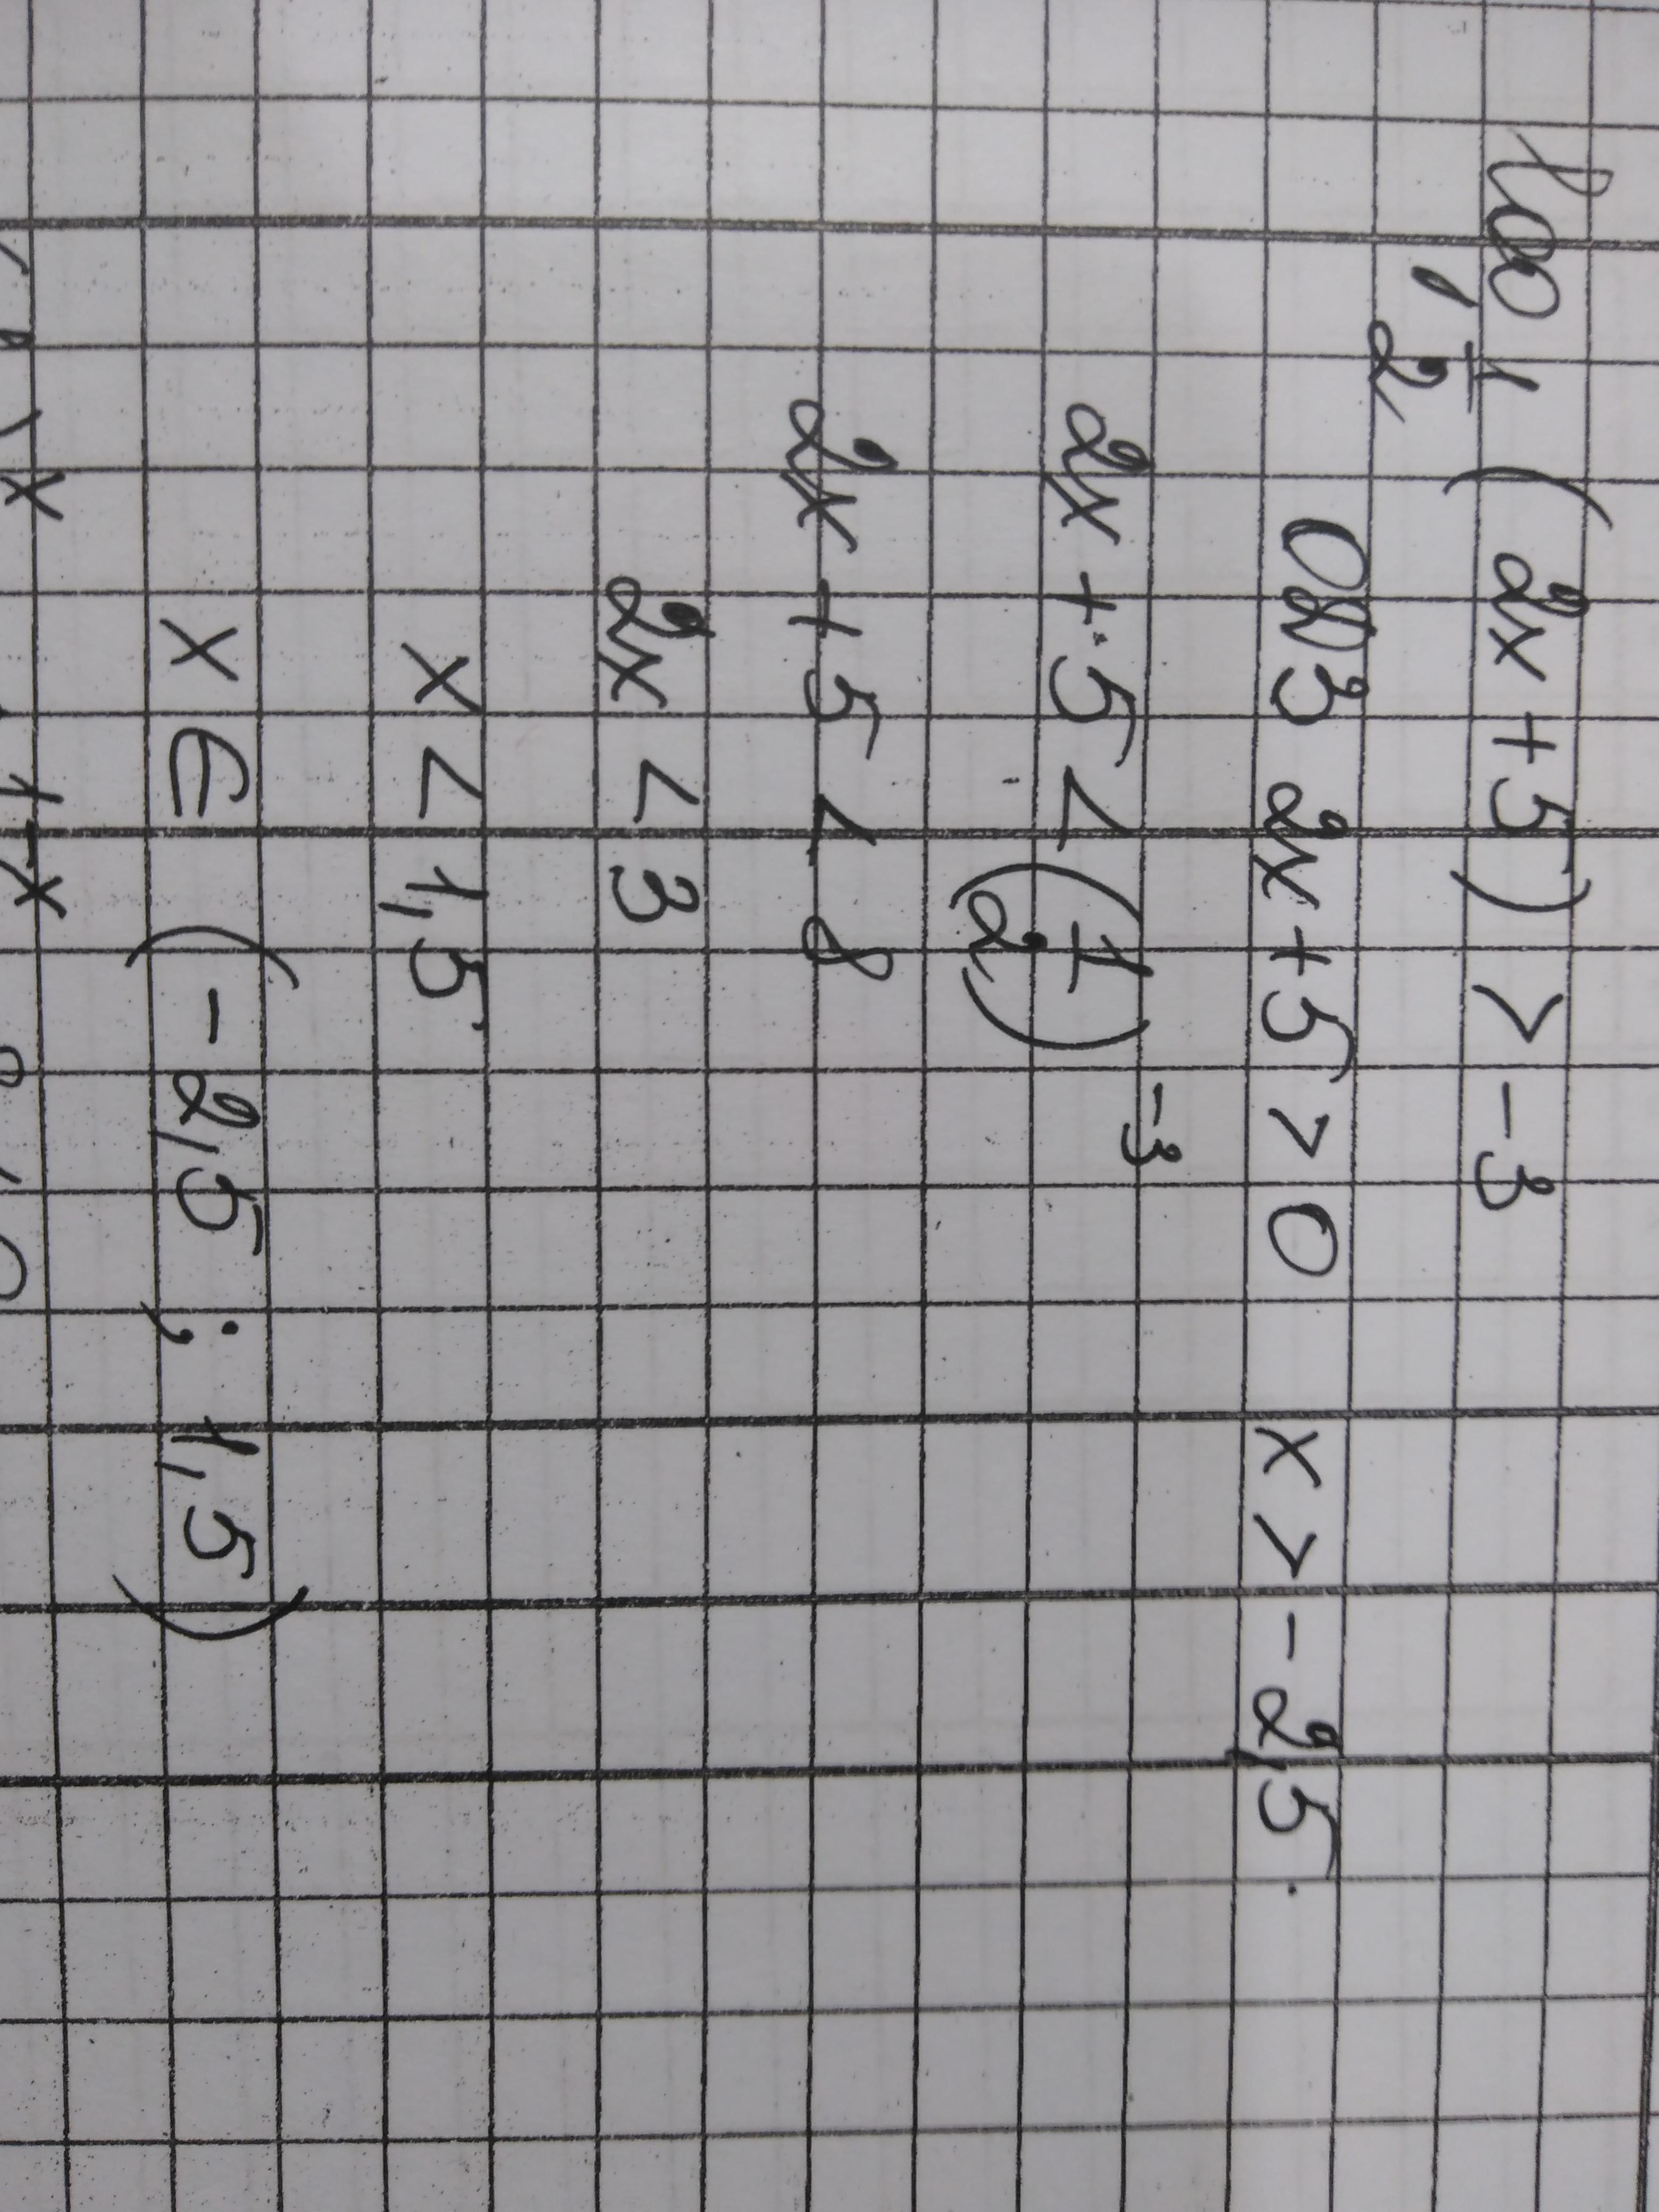 log 1/2 (2x+5) > -3
ОДЗ 2x+5>0 x>-2,5.
2x+5< (1/2)^-3
2x+5<8
2x<3
x<1,5
x∈(-2,5; 1,5)